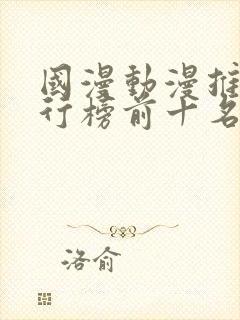 國漫動漫推
行榜前十名
洛俞